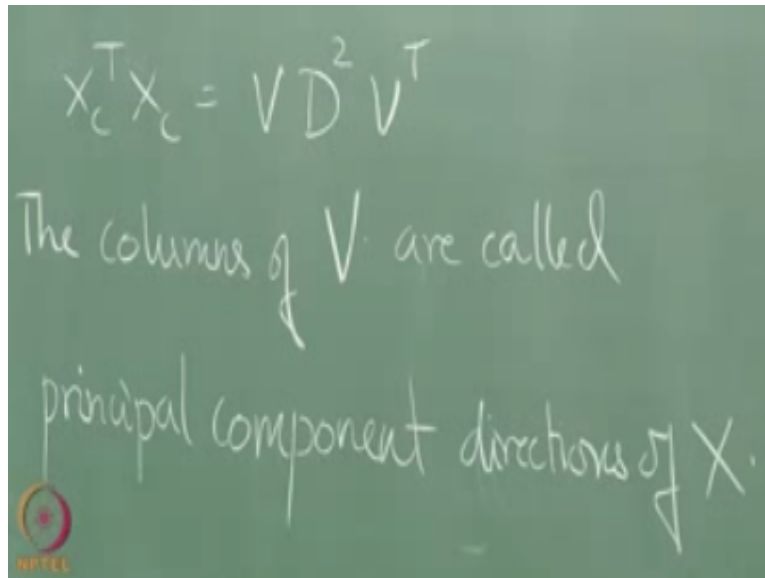 X_c^T X_c = V D^2 V^T
The columns of V are called
principal component directions of X.
NPTEL